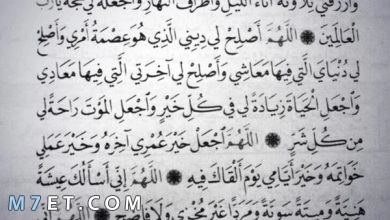 وارزقني تلاوته آناء الليل وأطراف النهار واجعله لي حجة يارب
العالمين ❁ اللَّهُمَّ أَصْلِحْ لِي دِينِي الَّذِي هُوَ عِصْمَةُ أَمْرِي وَأَصْلِحْ
لِي دُنْيَايَ الَّتِي فِيهَا مَعَاشِي وَأَصْلِحْ لِي آخِرَتِي الَّتِي فِيهَا مَعَادِي
وَاجْعَلِ الْحَيَاةَ زِيَادَةً لِي فِي كُلِّ خَيْرٍ وَاجْعَلِ الْمَوْتَ رَاحَةً لِي
مِن كُلِّ شَرٍّ ❁ اللَّهُمَّ اجْعَلْ خَيْرَ عُمْرِي آخِرَهُ وَخَيْرَ عَمَلِي
خَوَاتِمَهُ وَخَيْرَ أَيَّامِي يَوْمَ أَلْقَاكَ فِيهِ ❁ اللَّهُمَّ إِنِّي أَسْأَلُكَ عِيشَةً
هَنِيَّةً وَمِيتَةً سَوِيَّةً وَمَرَدًّا غَيْرَ مُخْزٍ وَلَا فَاضِحٍ ❁ اللَّهُمَّ إِنِّي
M7ET.COM